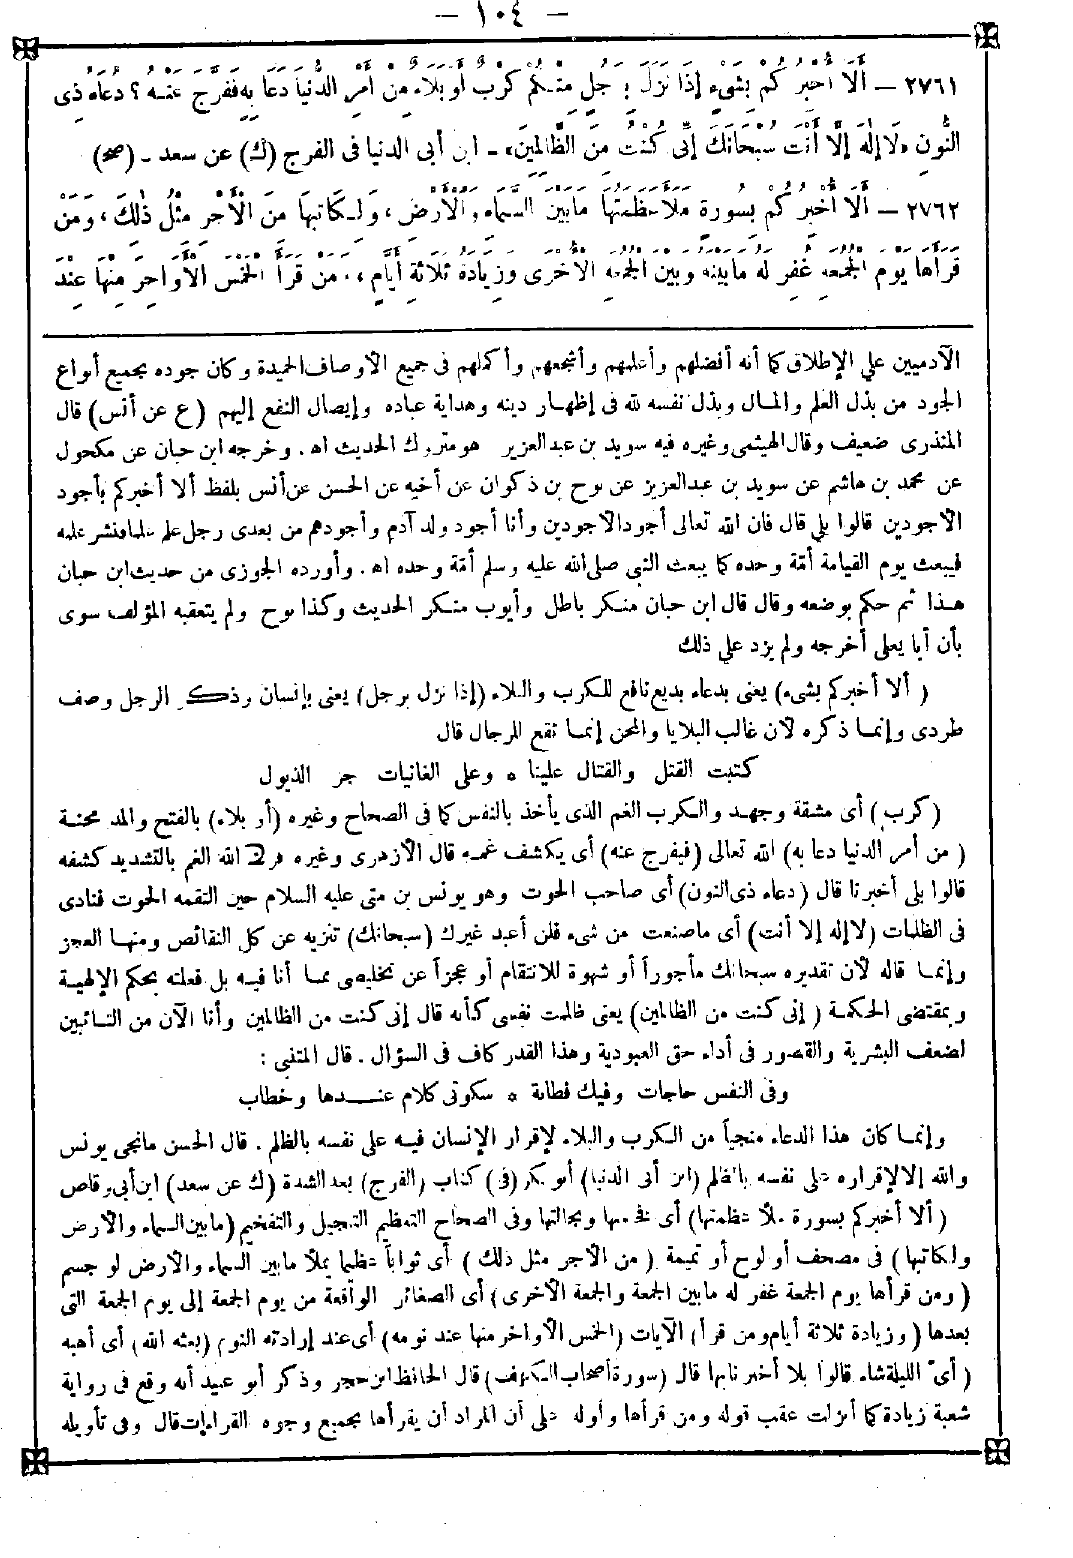 — ١٠٤ —
٢٧٦١ — أَلَا أُخْبِرُكُمْ بِشَيْءٍ إِذَا نَزَلَ بِرَجُلٍ مِنْكُمْ كَرْبٌ أَوْ بَلَاءٌ مِنْ أَمْرِ الدُّنْيَا دَعَا بِهِ فَفُرِّجَ عَنْهُ ؟ دُعَاءُ ذِى
النُّونِ «لَا إِلٰهَ إِلَّا أَنْتَ سُبْحَانَكَ إِنِّى كُنْتُ مِنَ الظَّالِمِينَ» - ابن أبى الدنيا فى الفرج (ك) عن سعد - (صح)
٢٧٦٢ — أَلَا أُخْبِرُكُمْ بِسُورَةٍ مَلَأَ عَظَمَتُهَا مَا بَيْنَ السَّمَاءِ وَالْأَرْضِ ، وَلِكَاتِبِهَا مِنَ الْأَجْرِ مِثْلُ ذٰلِكَ ، وَمَنْ
قَرَأَهَا يَوْمَ الْجُمُعَةِ غُفِرَ لَهُ مَا بَيْنَهُ وَبَيْنَ الْجُمُعَةِ الْأُخْرَى وَزِيَادَةُ ثَلَاثَةِ أَيَّامٍ ، . مَنْ قَرَأَ الْخَمْسَ الْأَوَاخِرَ مِنْهَا عِنْدَ
الآدميين على الإطلاق كما أنه أفضلهم وأعلمهم وأشجعهم وأكملهم فى جميع الأوصاف الحميدة وكان جوده بجميع أنواع
الجود من بذل العلم والمال وبذل نفسه لله فى إظهار دينه وهداية عباده وإيصال النفع إليهم (ع عن أنس) قال
المنذرى ضعيف وقال الهيثمى وغيره فيه سويد بن عبد العزيز هو متروك الحديث اه . وخرجه ابن حبان عن مكحول
عن محمد بن هاشم عن سويد بن عبد العزيز عن نوح بن ذكوان عن أخيه عن الحسن عن أنس بلفظ ألا أخبركم بأجود
الأجودين قالوا بلى قال فان الله تعالى أجود الأجودين وأنا أجود ولد آدم وأجودهم من بعدى رجل علم علما فنشر علمه
فيبعث يوم القيامة أمة وحده كما يبعث النبى صلى الله عليه وسلم أمة وحده اه . وأورده الجوزى من حديث ابن حبان
هذا ثم حكم بوضعه وقال قال ابن حبان منكر باطل وأيوب منكر الحديث وكذا نوح ولم يتعقبه المؤلف سوى
بأن أبا يعلى أخرجه ولم يزد على ذلك
( ألا أخبركم بشىء) يعنى بدعاء بديع نافع للكرب والبلاء (إذا نزل برجل) يعنى بإنسان وذكر الرجل وصف
طردى وإنما ذكره لأن غالب البلايا والمحن إنما تقع للرجال قال
كتبت القتل والقتال علينا * وعلى الغانيات جر الذيول
(كرب) أى مشقة وجهد والكرب الغم الذى يأخذ بالنفس كما فى الصحاح وغيره (أو بلاء) بالفتح والمد محنة
( من أمر الدنيا دعا به) الله تعالى (فيفرج عنه) أى يكشف غمه قال الأزهرى وغيره فرج الله الغم بالتشديد كشفه
قالوا بلى أخبرنا قال (دعاء ذى النون) أى صاحب الحوت وهو يونس بن متى عليه السلام حين التقمه الحوت فنادى
فى الظلمات (لا إله إلا أنت) أى ما صنعت من شىء فلن أعبد غيرك (سبحانك) تنزيه عن كل النقائص ومنها العجز
وإنما قاله لأن تقديره سبحانك مأجوراً أو شهوة للانتقام أو عجزاً عن تخليصى مما أنا فيه بل فعلته بحكم الإلهية
وبمقتضى الحكمة ( إنى كنت من الظالمين) يعنى ظلمت نفسى كأنه قال إنى كنت من الظالمين وأنا الآن من التائبين
لضعف البشرية والقصور فى أداء حق العبودية وهذا القدر كاف فى السؤال . قال المتنبى :
وفى النفس حاجات وفيك فطانة * سكوتى كلام عندها وخطاب
وإنما كان هذا الدعاء منجياً من الكرب والبلاء لإقرار الإنسان فيه على نفسه بالظلم . قال الحسن ما نجى يونس
والله إلا لإقراره على نفسه بالظلم (ابن أبى الدنيا) أبو بكر (فى) كتاب (الفرج) بعد الشدة (ك عن سعد) ابن أبى وقاص
( ألا أخبركم بسورة ملأ عظمتها) أى فخمها وبجالتها وفى الصحاح التعظيم التبجيل والتفخيم (ما بين السماء والأرض
ولكاتبها ) فى مصحف أو لوح أو تميمة ( من الأجر مثل ذلك ) أى ثواباً عظيما يملأ ما بين السماء والأرض لو جسم
( ومن قرأها يوم الجمعة غفر له ما بين الجمعة والجمعة الأخرى) أى الصغائر الواقعة من يوم الجمعة إلى يوم الجمعة التى
بعدها ( وزيادة ثلاثة أيام ومن قرأ) الآيات (الخمس الأواخر منها عند نومه) أى عند إرادته النوم (بعثه الله) أى أهبه
( أىّ الليلة شاء قالوا بلا أخبرنا بها قال (سورة أصحاب الكهف) قال الحافظ ابن حجر وذكر أبو عبيد أنه وقع فى رواية
شعبة زيادة كما أنزلت عقب قوله ومن قرأها وأوله على أن المراد أن يقرأها بجميع وجوه القراءات قال وفى تأويله